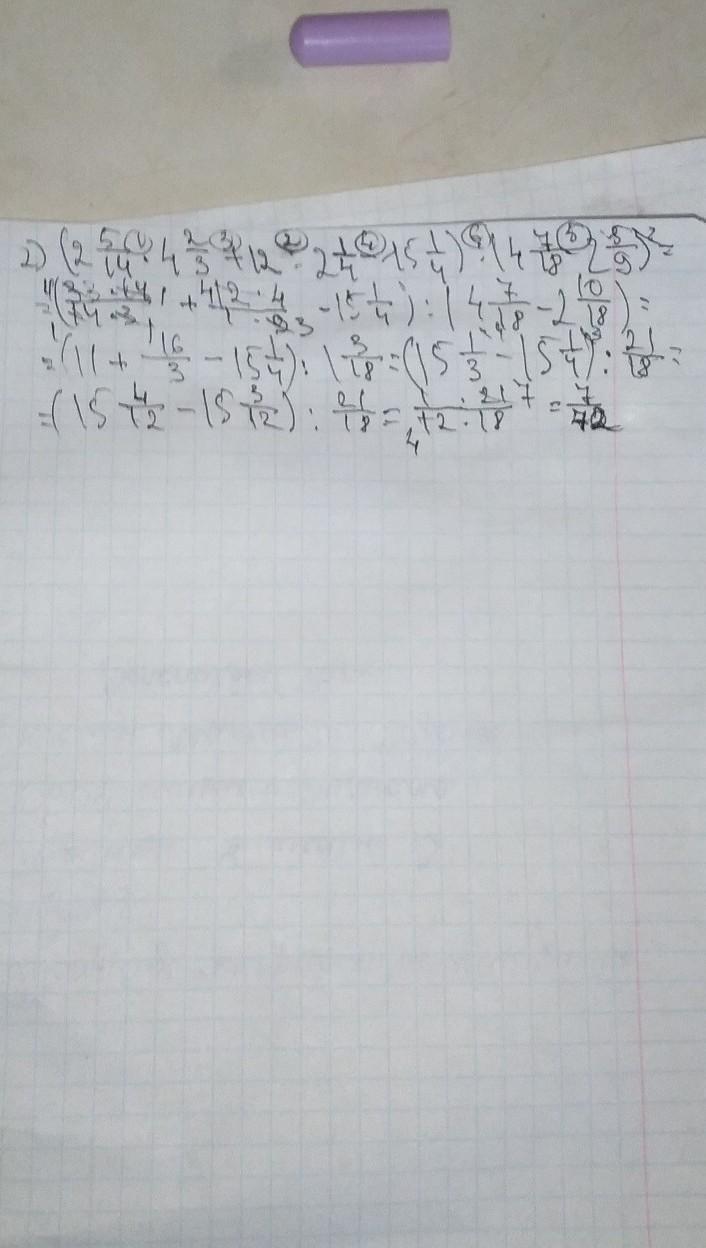 2) (2 5/14 · 4 2/3 + 12 : 2 1/4 - 15 1/4) : (4 7/18 - 2 5/9) =
= (33 · 14/14 · 3 + 12 · 4/1 · 9 - 15 1/4) : (4 7/18 - 2 10/18) =
= (11 + 16/3 - 15 1/4) : 1 3/18 = (15 1/3 - 15 1/4) : 21/18 =
= (15 4/12 - 15 3/12) : 21/18 = 1 · 21/12 · 18 = 7/72